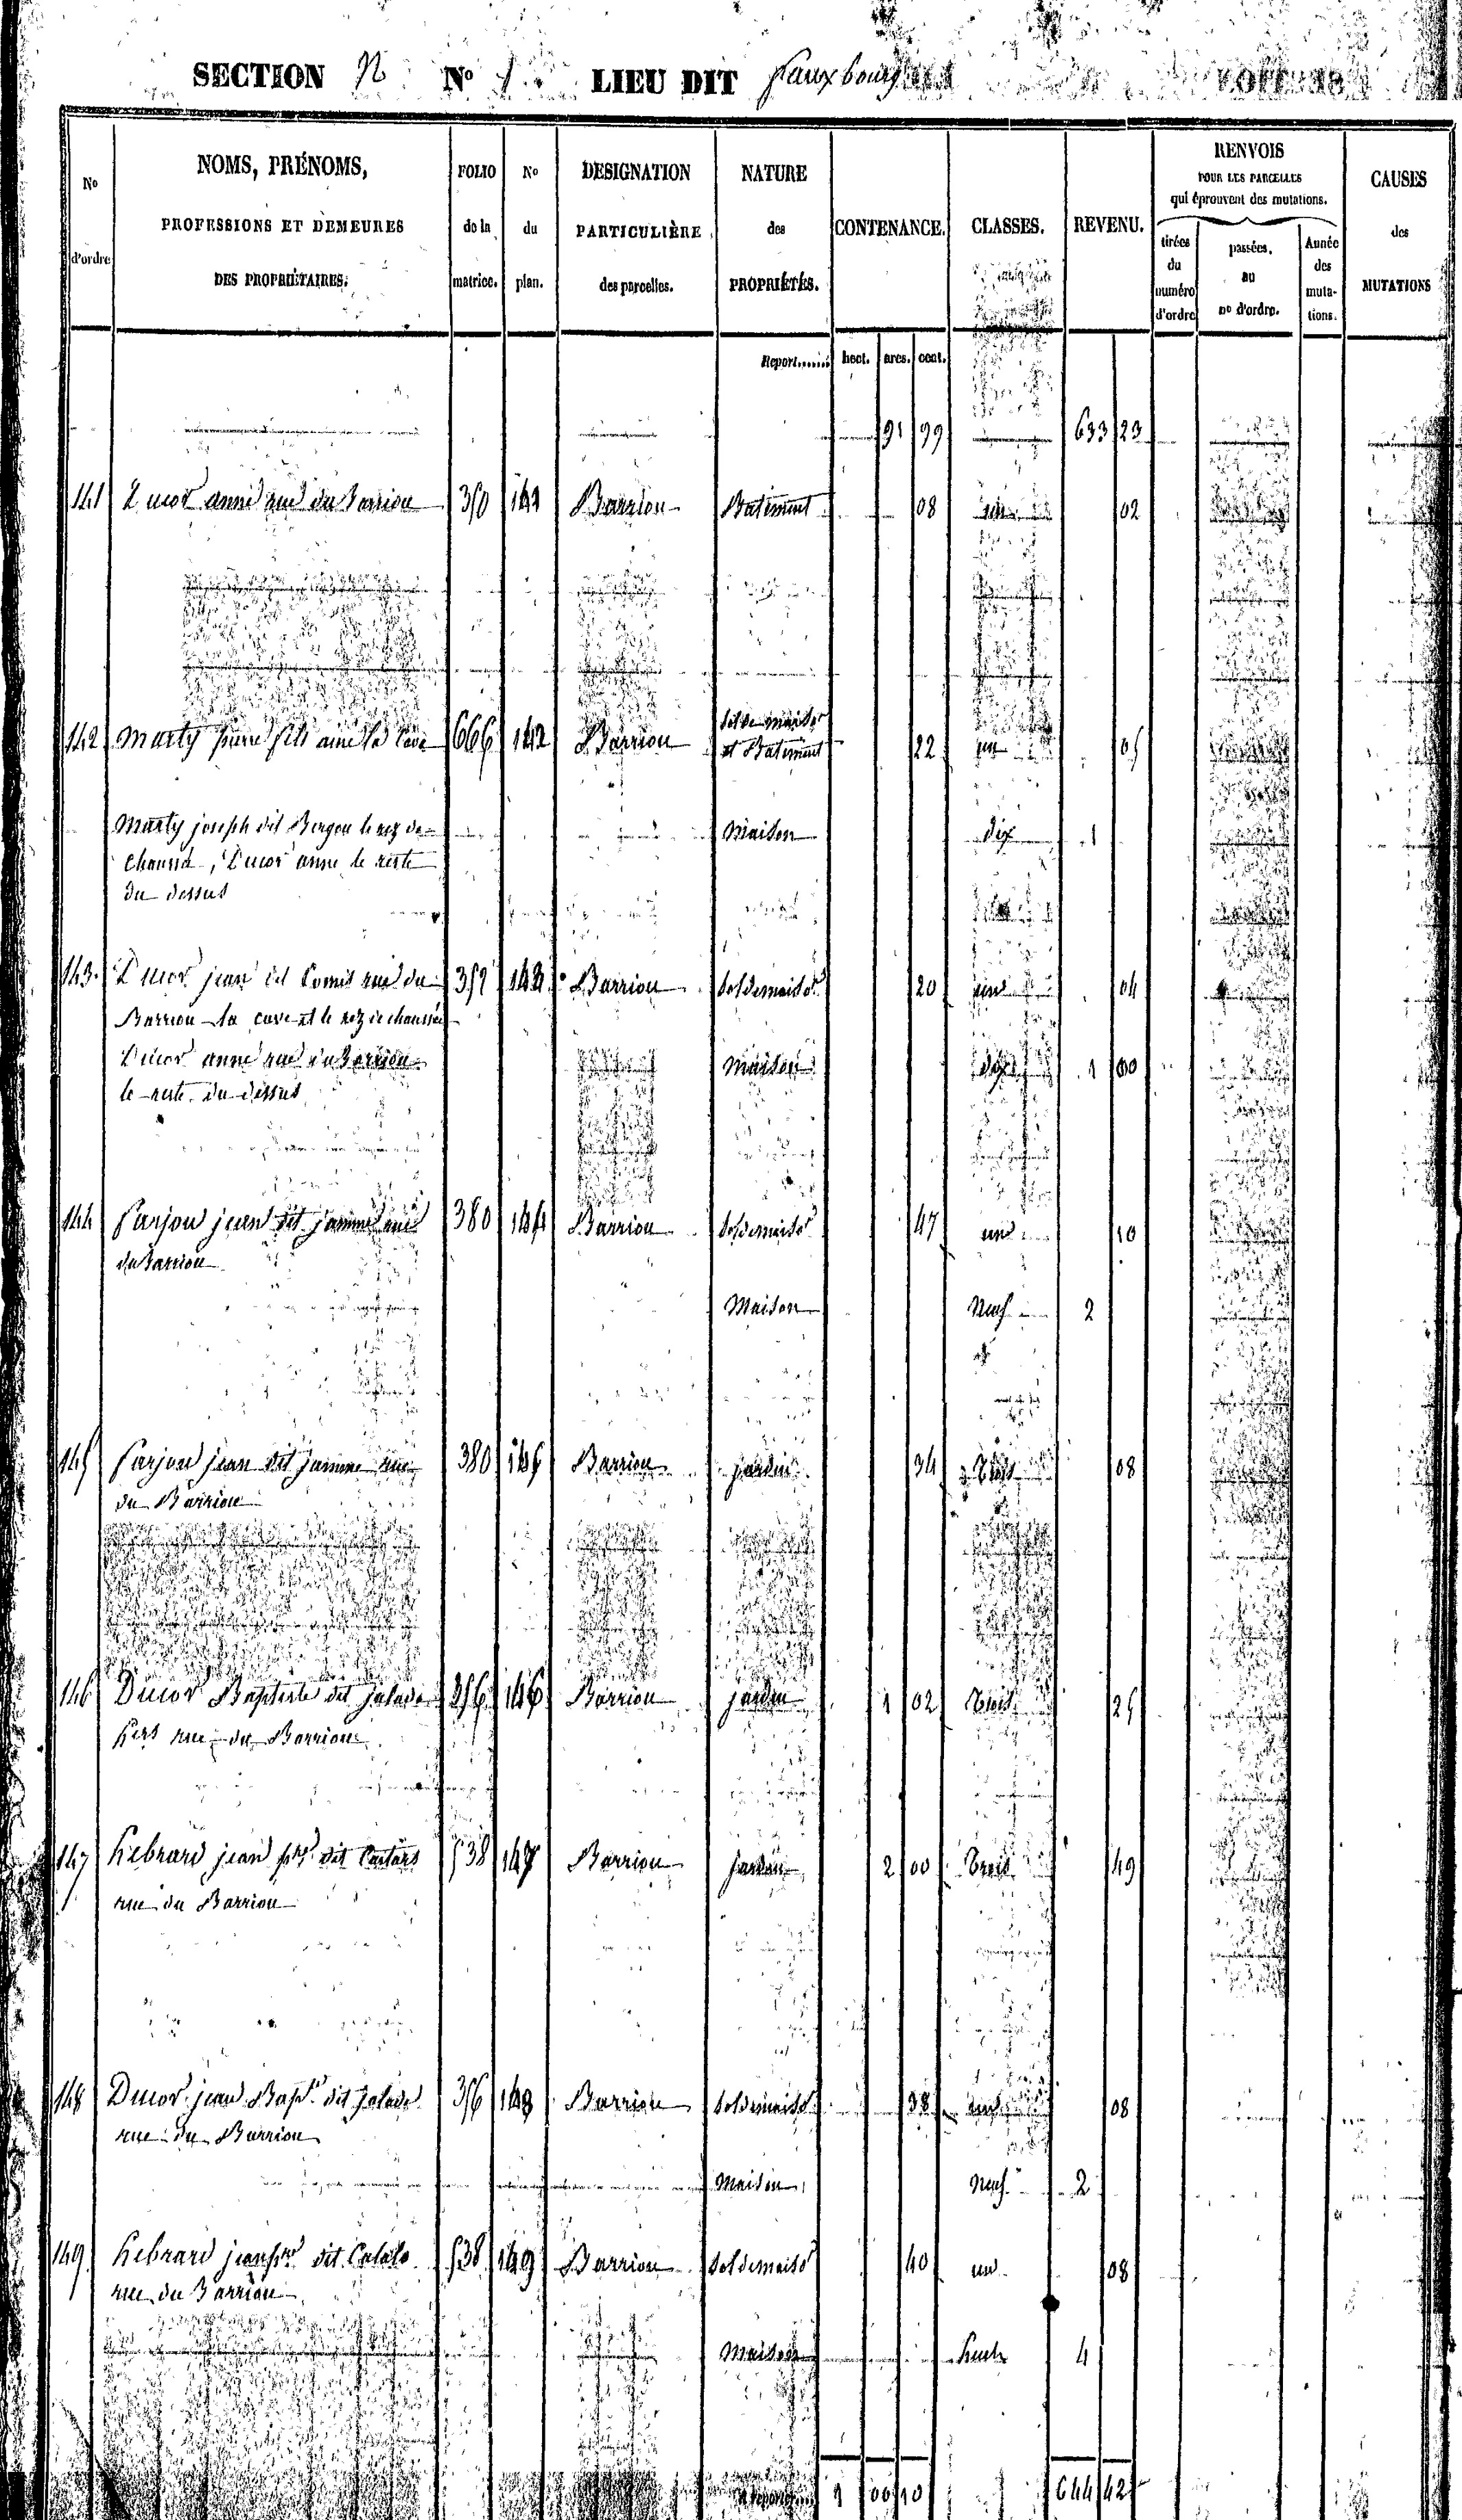 SECTION N No 1 LIEU DIT Fauxbourg
No d'ordre
NOMS, PRÉNOMS, PROFESSIONS ET DEMEURES DES PROPRIÉTAIRES.
FOLIO de la matrice.
No du plan.
DESIGNATION PARTICULIÈRE des parcelles.
NATURE des PROPRIÉTÉS.
CONTENANCE.
CLASSES.
REVENU.
RENVOIS POUR LES PARCELLES qui éprouvent des mutations.
tirées du numéro d'ordre
passées. au no d'ordre.
Année des mutations.
CAUSES des MUTATIONS
Report...... hect. ares. cent.
91 99 633 23
141 Ducor anne rue du Barriou 350 141 Barriou Batiment 08 une 02
142 Marty pierre fils ainé 666 142 Barriou Sol de maison et Batiment 22 un 05
Marty joseph dit Bergou le rez de Maison dix 1
chaussée, Ducor anne le reste
du dessus
143 Ducor jean dit rue du 352 143 Barriou Sol de maison 20 une 04
Barriou la cave et le rez de chaussée
Ducor anne rue du Barriou Maison dix 1 00
le reste du dessus
144 Farjou jean dit jamme rue 380 144 Barriou Sol de maison 47 une 10
du Barriou
Maison Neuf 2
145 Farjou jean dit jamme rue 380 145 Barriou jardin 34 Trois 08
du Barriou
146 Ducor Baptiste dit jalade 356 146 Barriou jardin 1 02 Trois 25
rue du Barriou
147 Hebrard jean pre dit rue 538 147 Barriou jardin 2 00 Trois 49
rue du Barriou
148 Ducor jean Bapte dit jalade 356 148 Barriou Sol de maison 38 une 08
rue du Barriou
Maison Neuf 2
149 Hebrard jean pre dit 538 149 Barriou Sol de maison 40 une 08
rue du Barriou
Maison huit 4
1 00 10 644 42